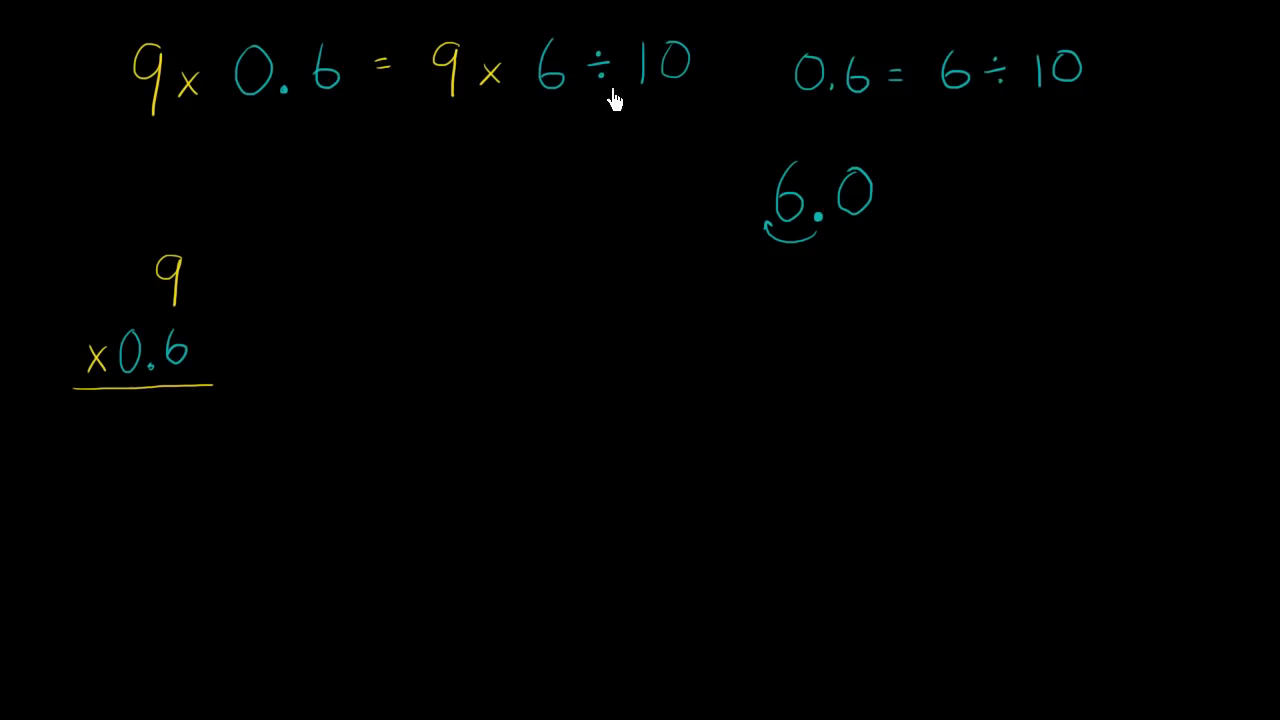 9 x 0.6 = 9 x 6 ÷ 10
0.6 = 6 ÷ 10
6.0
9
x 0.6